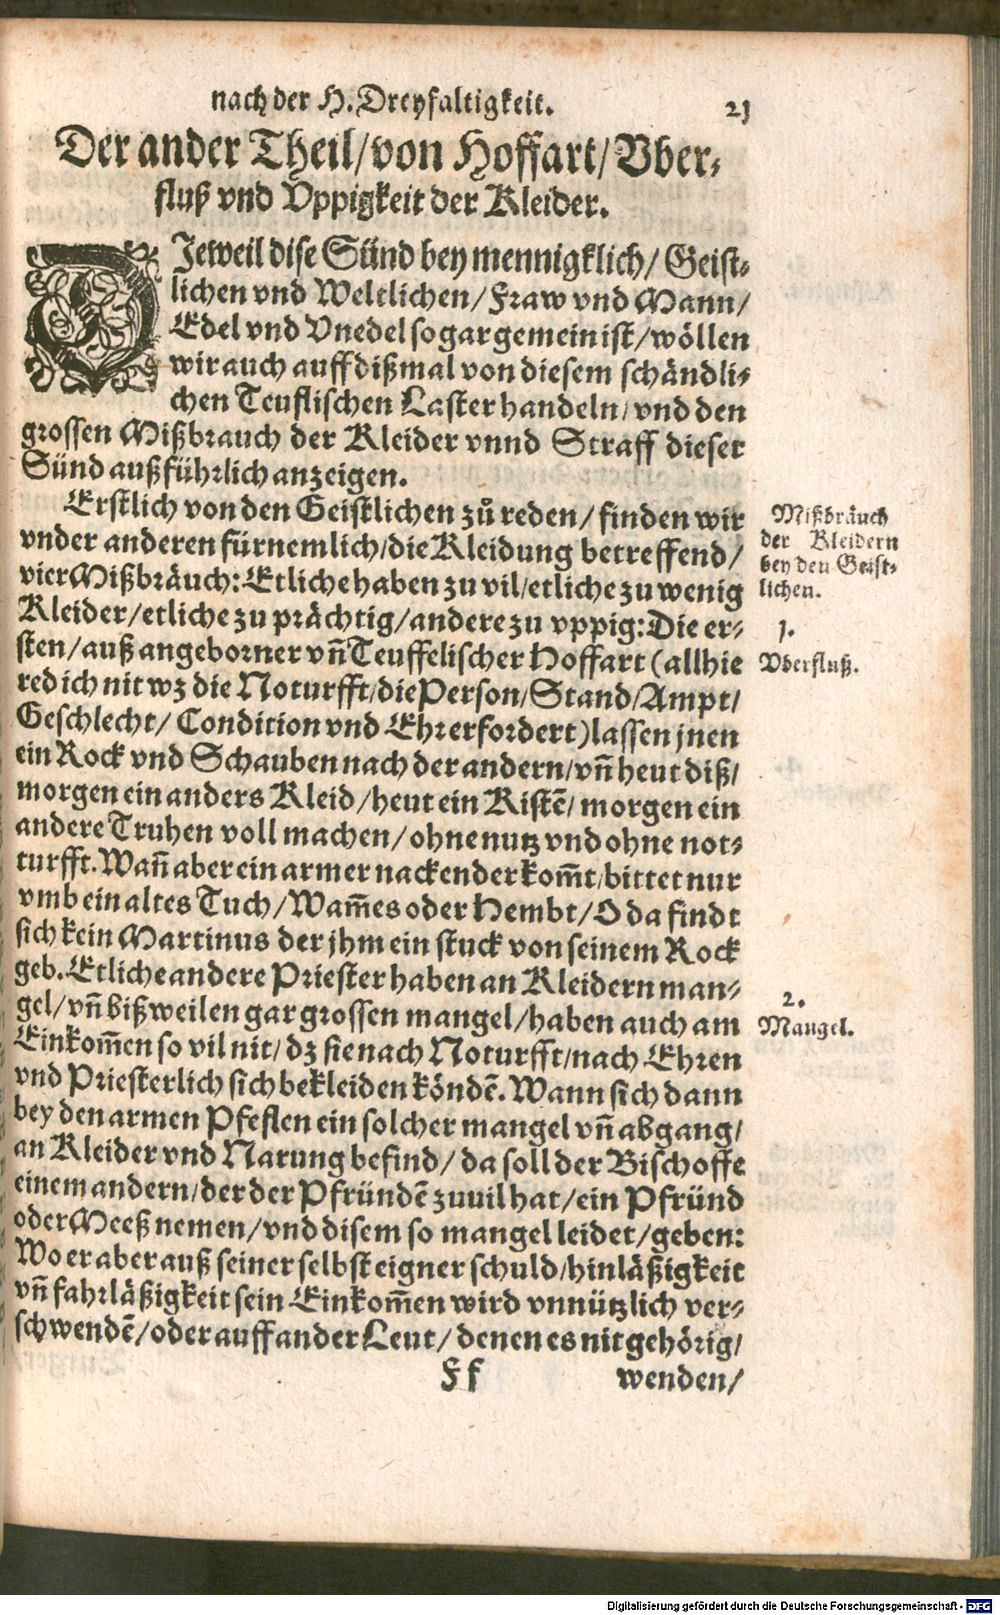 nach der H. Dreyfaltigkeit. 21
Der ander Theil/ von Hoffart/ Vber-
fluß vnd Vppigkeit der Kleider.
DJeweil dise Sünd bey mennigklich/ Geist-
lichen vnd Weltlichen/ Fraw vnd Mann/
Edel vnd Vnedel so gar gemein ist/ wöllen
wir auch auff dißmal von diesem schändli-
chen Teuflischen Laster handeln/ vnd den
grossen Mißbrauch der Kleider vnnd Straff dieser
Sünd außführlich anzeigen.
Erstlich von den Geistlichen zů reden/ finden wir
vnder anderen fürnemlich/ die Kleidung betreffend/
vier Mißbräuch: Etliche haben zu vil/ etliche zu wenig
Kleider/ etliche zu prächtig/ andere zu vppig: Die er-
sten/ auß angeborner vn̄ Teuffelischer Hoffart (allhie
red ich nit wz die Noturfft/ die Person/ Stand/ Ampt/
Geschlecht/ Condition vnd Ehr erfordert) lassen jnen
ein Rock vnd Schauben nach der andern/ vn̄ heut diß/
morgen ein anders Kleid/ heut ein Kistē/ morgen ein
andere Truhen voll machen/ ohne nutz vnd ohne not-
turfft. Wan̄ aber ein armer nackender kom̄t/ bittet nur
vmb ein altes Tuch/ Wam̄es oder Hembt/ O da findt
sich kein Martinus der jhm ein stuck von seinem Rock
geb. Etliche andere Priester haben an Kleidern man-
gel/ vn̄ bißweilen gar grossen mangel/ haben auch am
Einkom̄en so vil nit/ dz sie nach Noturfft/ nach Ehren
vnd Priesterlich sich bekleiden köndē. Wann sich dann
bey den armen Pfeflen ein solcher mangel vn̄ abgang/
an Kleider vnd Narung befind/ da soll der Bischoffe
einem andern/ der der Pfründē zuuil hat/ ein Pfründ
oder Meeß nemen/ vnd disem so mangel leidet/ geben:
Wo er aber auß seiner selbst eigner schuld/ hinläßigkeit
vn̄ fahrläßigkeit sein Einkom̄en wird vnnützlich ver-
schwendē/ oder auff ander Leut/ denen es nit gehörig/
Ff wenden/
Mißbräuch
der Kleidern
bey den Geist-
lichen.
1.
Vberfluß.
2.
Mangel.
Digitalisierung gefördert durch die Deutsche Forschungsgemeinschaft - DFG